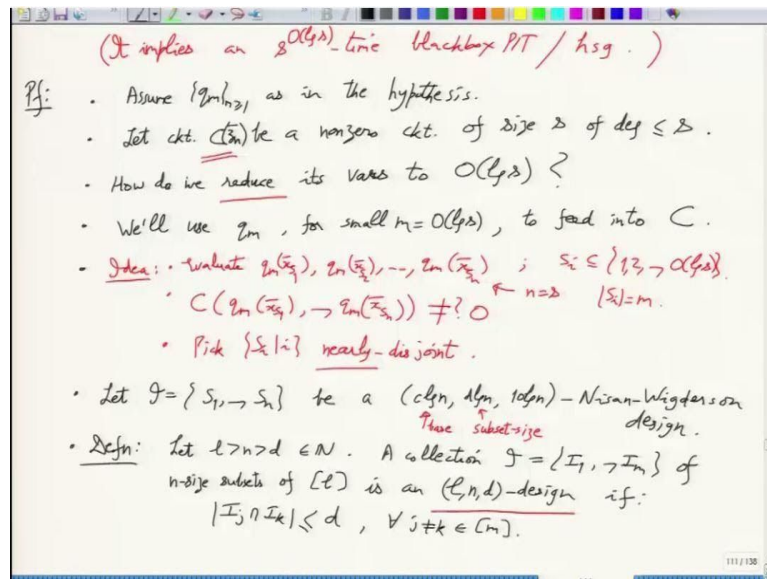 (It implies an s^{O(lg s)}-time blackbox PIT / hsg. )
Pf: · Assume {q_m}_{m≥1} as in the hypothesis.
· Let ckt. C(z̄_n) be a nonzero ckt. of size s of deg ≤ s.
· How do we reduce its vars to O(lg s) ?
· We'll use q_m, for small m=O(lg s), to feed into C.
· Idea: · evaluate q_m(x̄_{S_1}), q_m(x̄_{S_2}), --, q_m(x̄_{S_n}) ; S_i ⊆ {1,2,→ O(lg s)}.
· C(q_m(x̄_{S_1}), → q_m(x̄_{S_n})) ≠? 0 ← n=s |S_i|=m.
· Pick {S_i | i} nearly-disjoint.
· Let 𝓘 = {S_1, → S_n} be a (c lg n, d lg n, 10 lg n) - Nisan-Wigderson
↑base ↑subset-size design.
· Defn: Let l>n>d ∈ ℕ. A collection 𝓘 = {I_1, → I_m} of
n-size subsets of [l] is an (l,n,d)-design if:
|I_j ∩ I_k| ≤ d, ∀ j≠k ∈ [m].
111 / 138